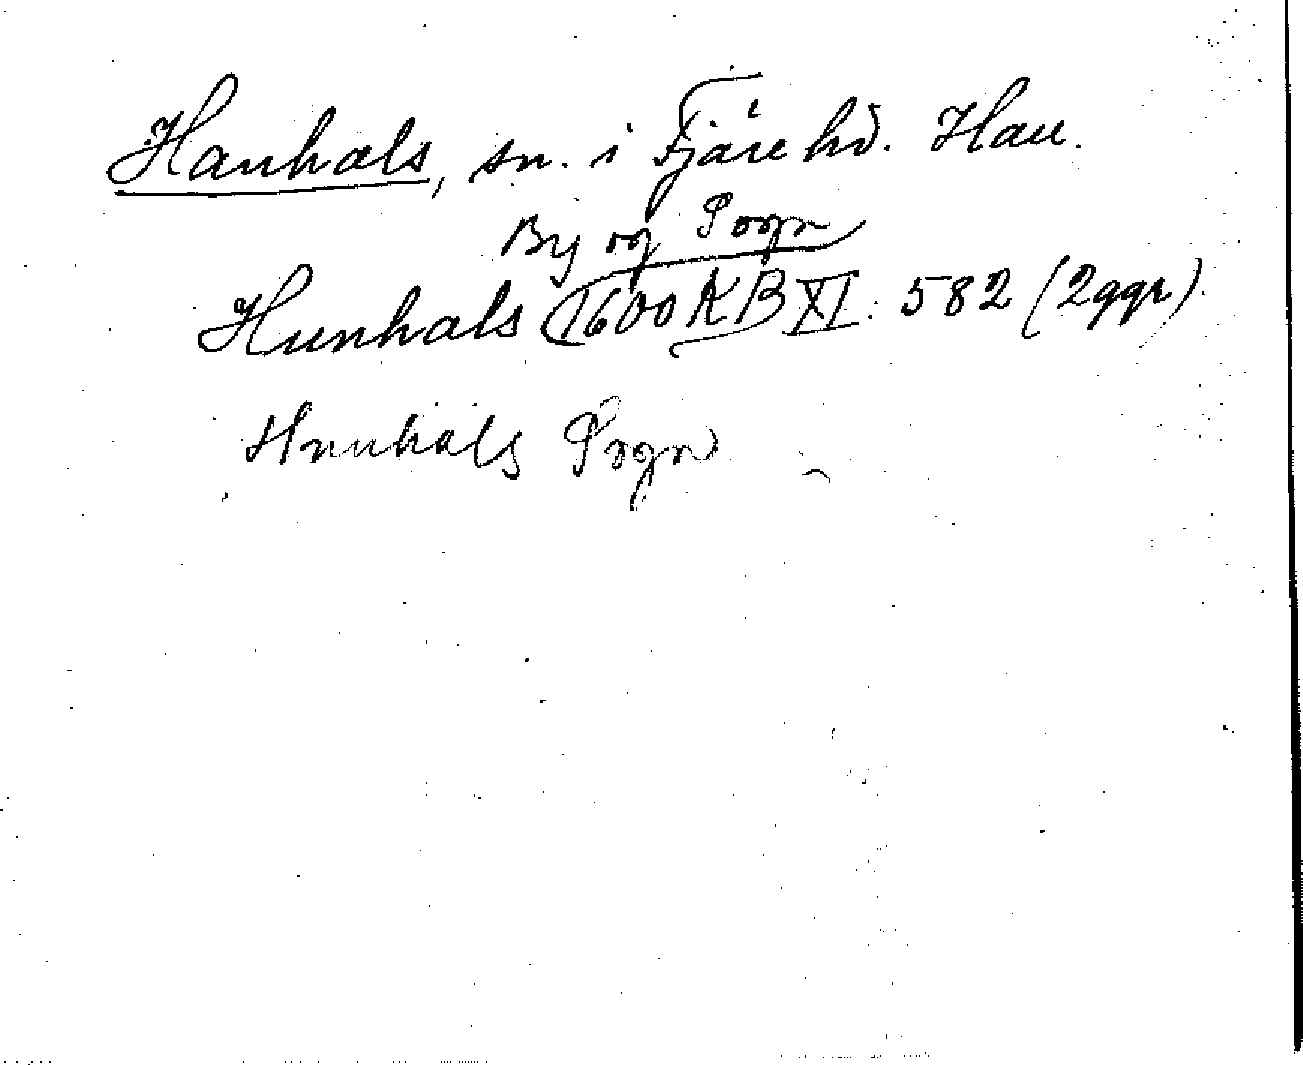 Hanhals, sn. i Fjäre hd. Hall.
By og Sogn
Hunhals 1600 KB XI: 582 (2 ggr)
Hunhals Sogn